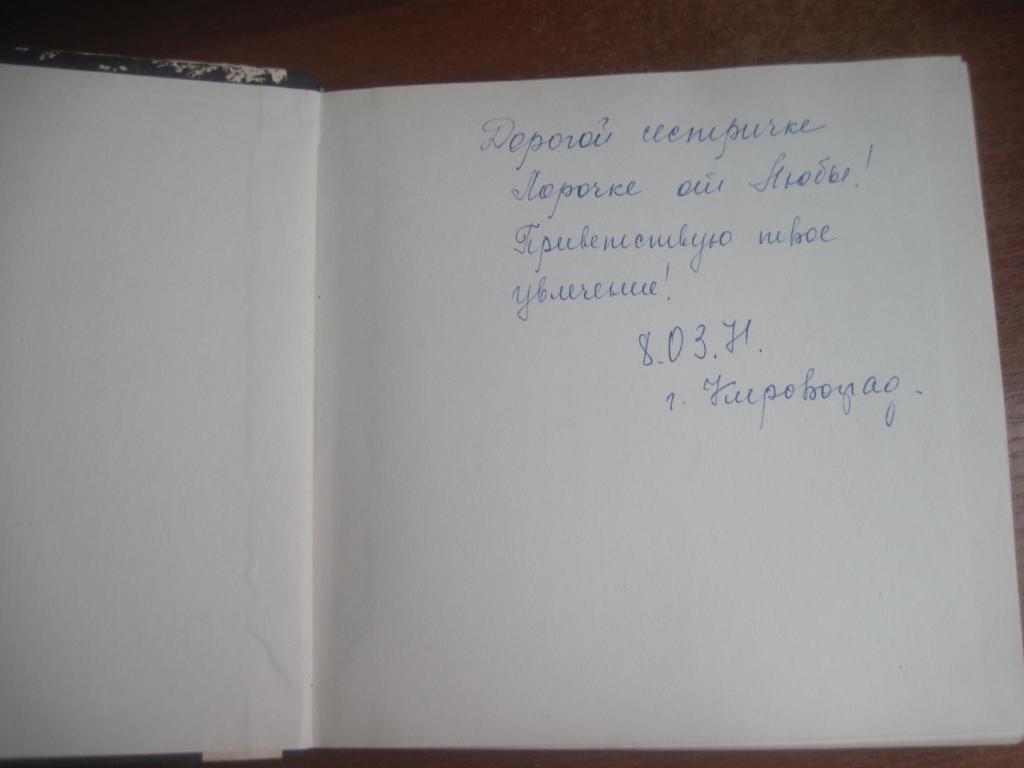 Дорогой сестричке
Лорочке от Любы!
Приветствую твое
увлечение!
8.03.71.
г. Кировоград.